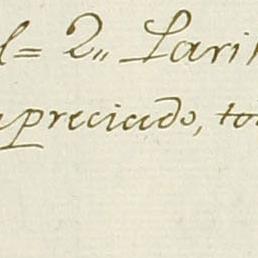 l = 2,, Lari
preciado, to